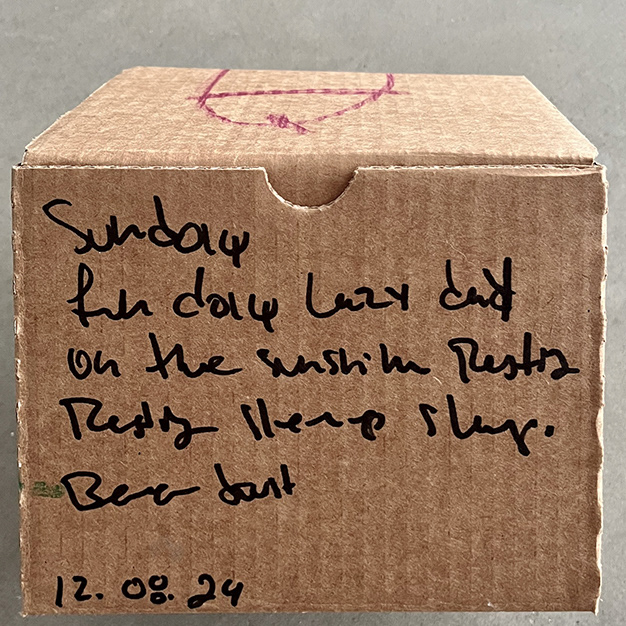 Sunday
fun day Lazy day
on the sunshin Resting
Resting sleep sleep.
12. 08. 24